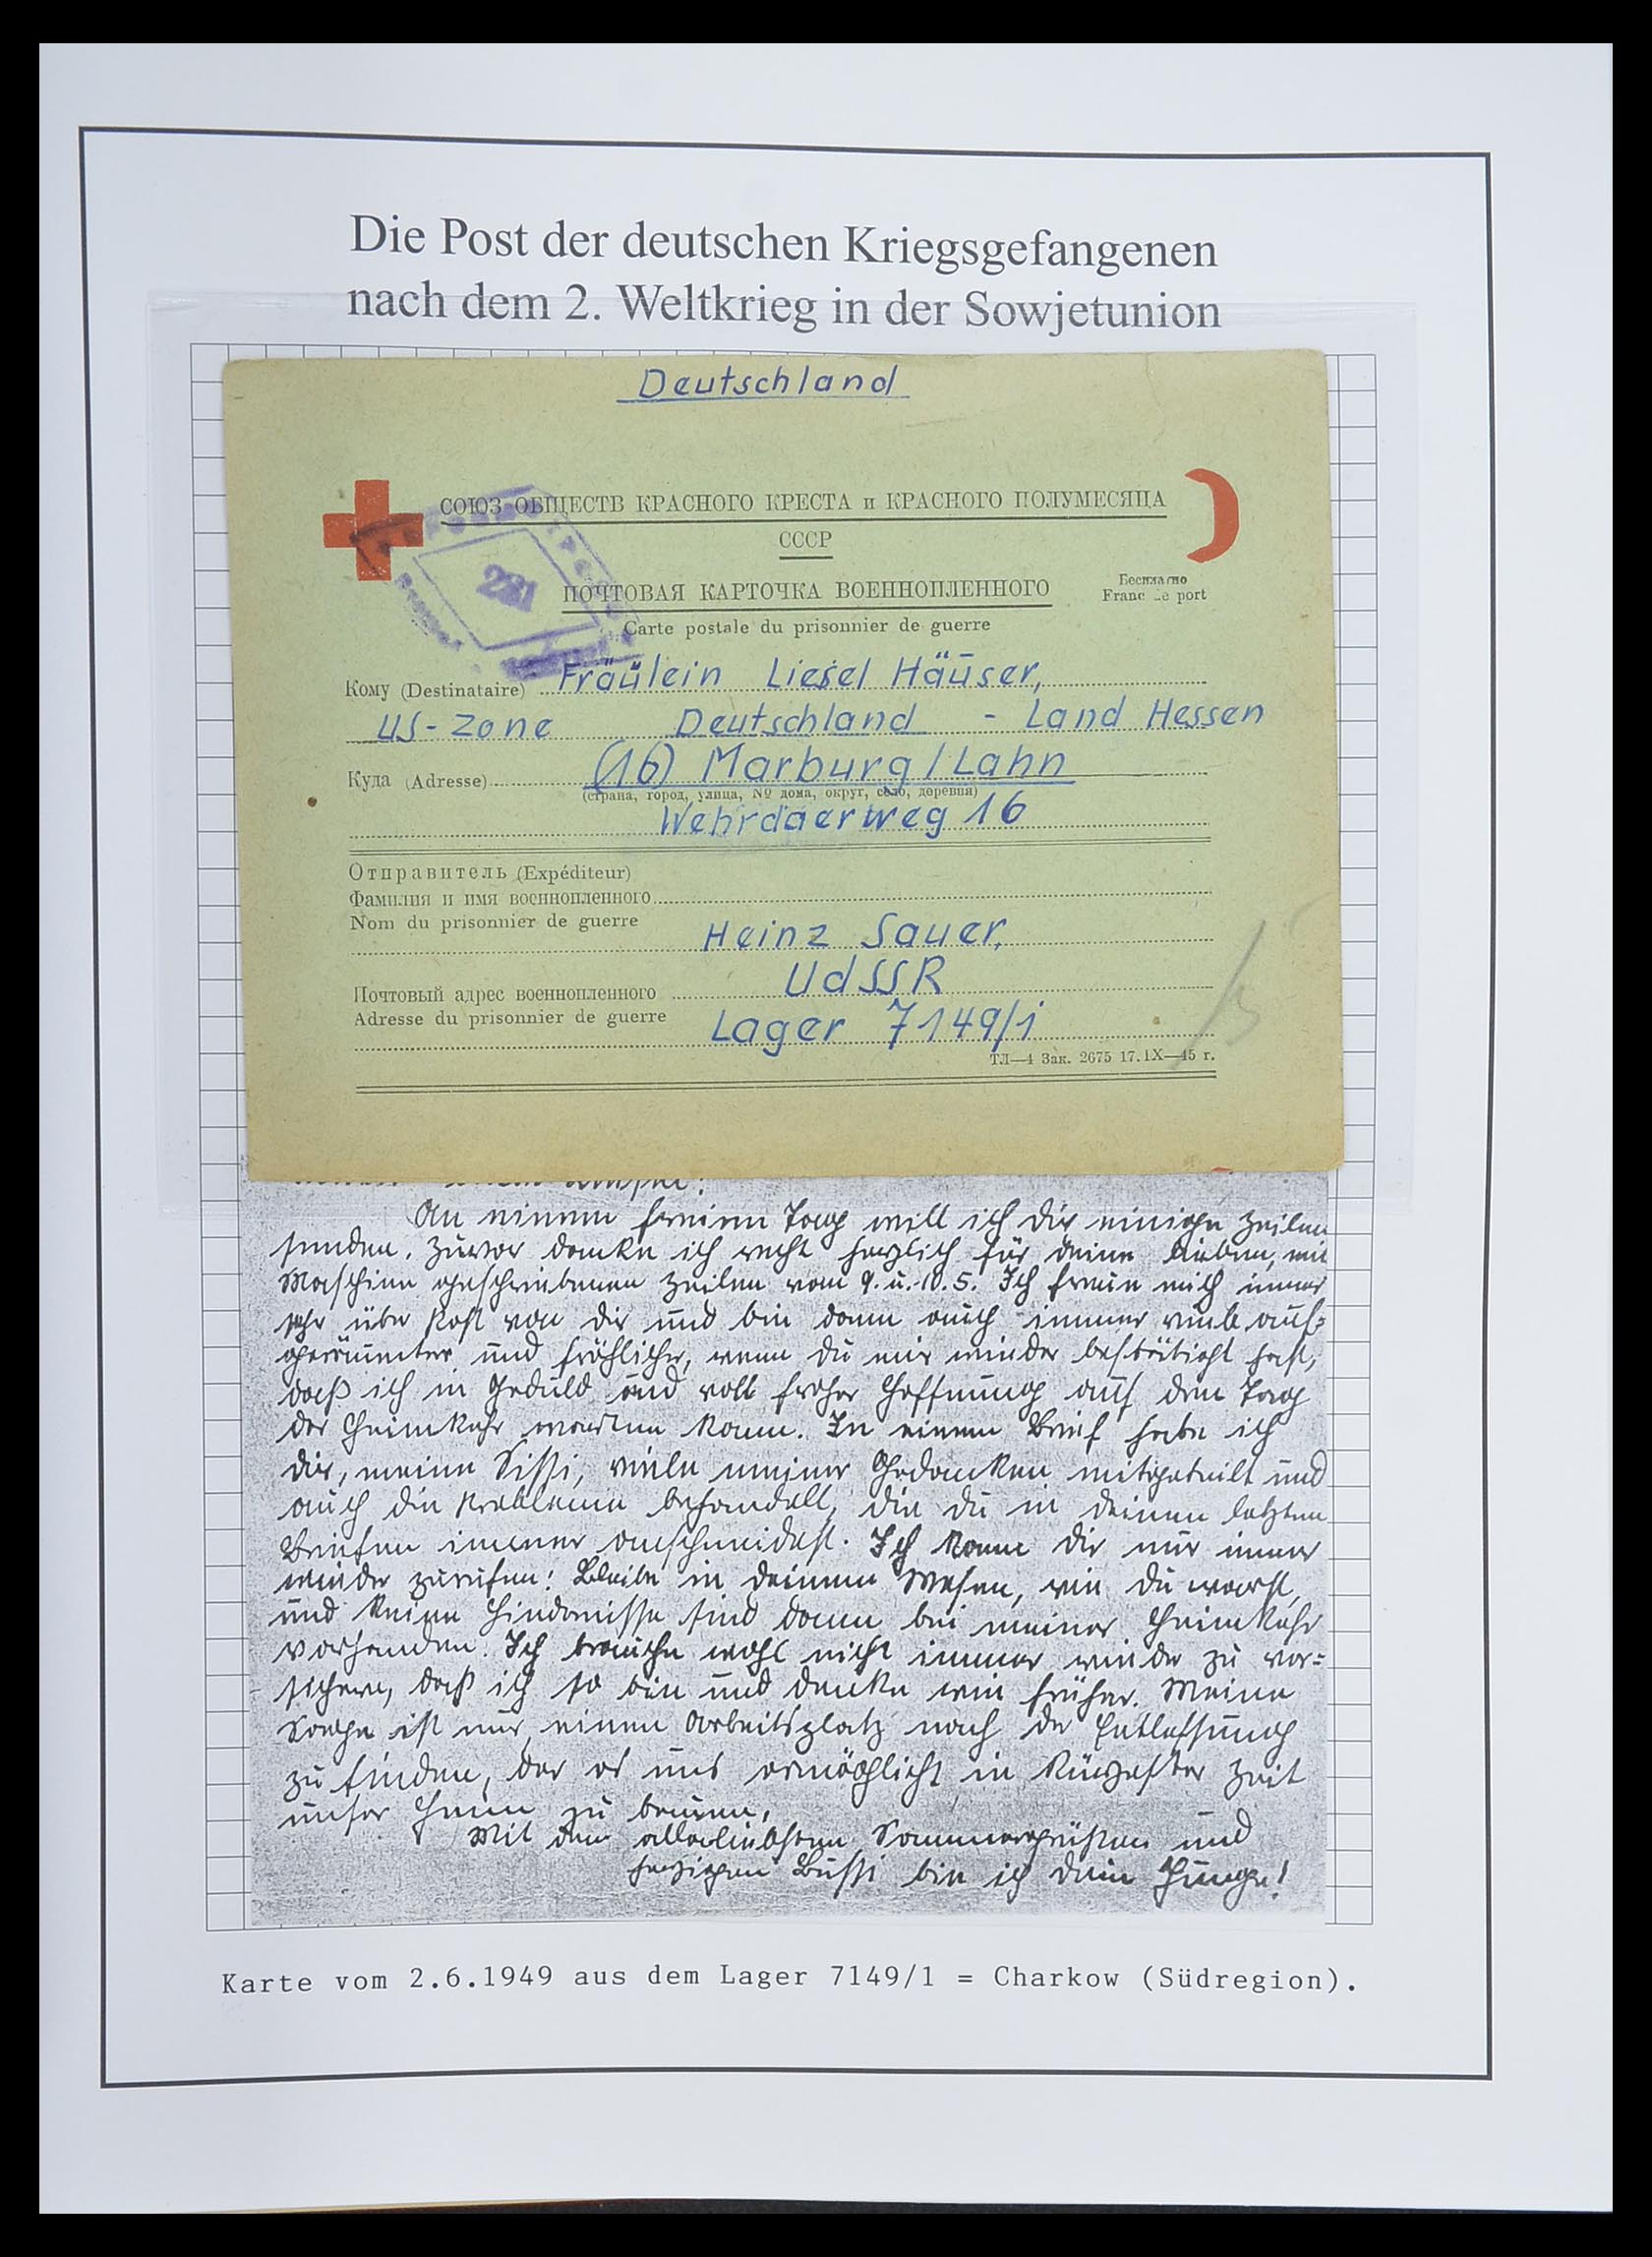 Die Post der deutschen Kriegsgefangenen
nach dem 2. Weltkrieg in der Sowjetunion
Deutschland
СОЮЗ ОБЩЕСТВ КРАСНОГО КРЕСТА и КРАСНОГО ПОЛУМЕСЯЦА
СССР
ПОЧТОВАЯ КАРТОЧКА ВОЕННОПЛЕННОГО
Бесплатно
Franc de port
Carte postale du prisonnier de guerre
Кому (Destinataire) Fräulein Liesel Häuser,
US-Zone Deutschland - Land Hessen
Куда (Adresse) (16) Marburg/Lahn
(страна, город, улица, № дома, округ, село, деревня)
Wehrdaerweg 16
Отправитель (Expéditeur)
Фамилия и имя военнопленного
Nom du prisonnier de guerre
Heinz Sauer,
UdSSR
Почтовый адрес военнопленного
Adresse du prisonnier de guerre
Lager 7149/1
ТЛ—4 Зак. 2675 17.IX—45 г.
An einem freien Tag will ich dir einige Zeilen
senden. Zuvor danke ich recht herzlich für deine lieben, mit
Maschine geschriebenen Zeilen vom 9. u. 10. 5. Ich freue mich immer
sehr über Post von dir und bin dann auch immer viel auf=
geräumter und fröhlicher, wenn du mir wieder bestätigt hast,
daß ich in Geduld und voll froher Hoffnung auf den Tag
der Heimkehr warten kann. In einem Brief habe ich
dir, meine Sissi, viele meiner Gedanken mitgeteilt und
auch die Probleme behandelt, die du in deinen letzten
Briefen immer anschneidest. Ich kann dir nur immer
wieder zurufen: Bleibe in deinem Wesen, wie du warst,
und keine Hindernisse sind dann bei meiner Heimkehr
vorhanden. Ich brauche wohl nicht immer wieder zu ver=
sichern, daß ich so bin und denke wie früher. Meine
Sorge ist nur, einen Arbeitsplatz nach der Entlassung
zu finden, der es uns ermöglicht in kürzester Zeit
unser Heim zu bauen.
Mit den allerliebsten Sommergrüßen und
herzigem Bussi bin ich dein Junge!
Karte vom 2.6.1949 aus dem Lager 7149/1 = Charkow (Südregion).